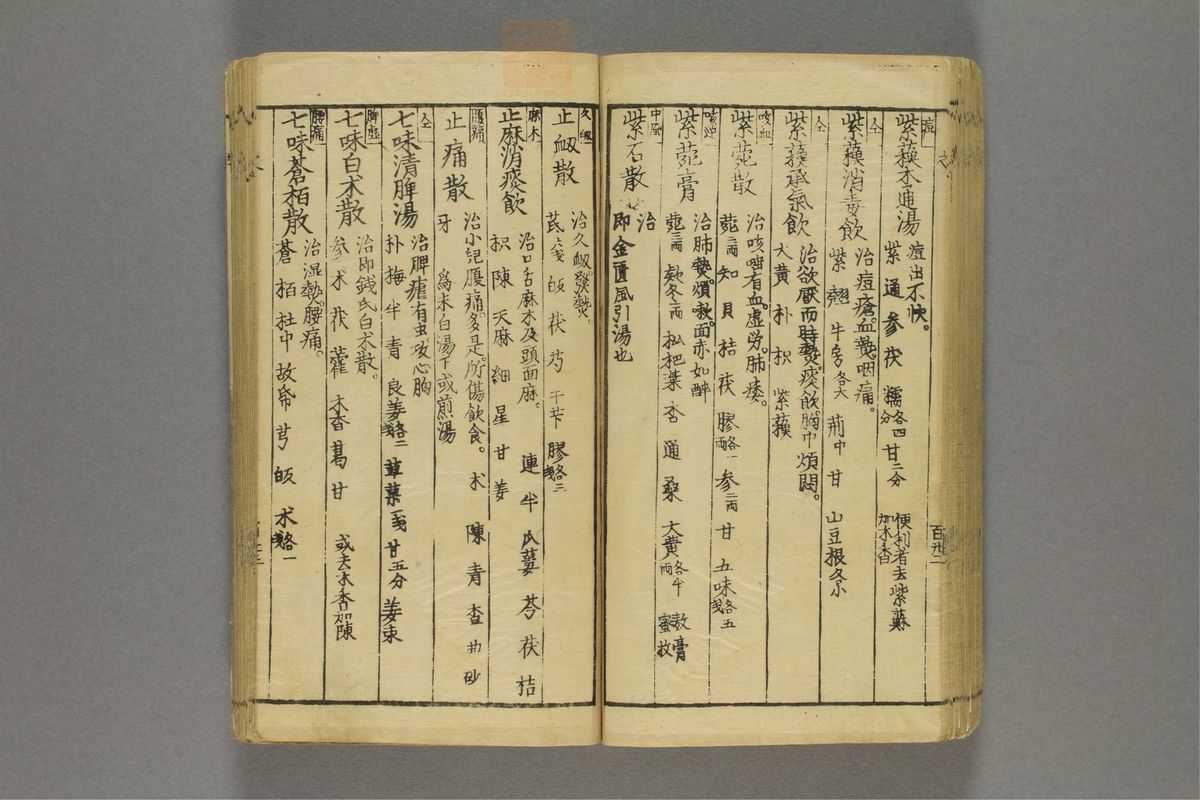 痘
紫蘓木通湯
痘出不快。
紫 通 参 茯 糯各四分 甘二分 便利者去紫蘓加木香
仝
紫蘓消毒飲
治痘瘡。血熱。咽痛。
紫 翹 牛旁各大 荊中 甘 山豆根各小
仝
紫蘓承氣飲
治欲厭而時熱。痰飲。胸中煩悶。
大黄 朴 枳 紫蘓
咳血
紫菀散
治咳唾有血。虚労。肺痿。
菀二両 知 貝 桔 茯 膠各一両 参二両 甘 五味各五戔
咳逆
紫菀膏
治肺熱。煩嗽。面赤如醉
菀三両 欵冬二両 枇杷葉 杏 通 桑 大黄各半両 蜜敖膏
中風
紫石散
治
即金匱風引湯也
百卅二
久衂
止衂散
治久衂發熱。
芪戔 皈 茯 芍 干苄 膠各三戔
麻木
止麻消痰飲
治口舌麻木及頭面麻。
連 半 瓜蔞 芩 茯 桔
枳 陳 天麻 細 星 甘 姜
腹痛
止痛散
治小児腹痛。多是。所傷飲食。
术 陳 青 査 曲 砂
牙 為末白湯下或煎湯
仝
七味清脾湯
治脾瘧有虫。攻心胸
朴 梅 半 青 良姜各二戔 草菓一戔 甘五分 姜枣
脾虚
七味白术散
治即銭氏白术散。
参 术 茯 藿 木香 葛 甘 或去木香加陳
腰痛
七味蒼栢散
治湿熱。腰痛。
蒼 栢 杜中 故帋 芎 皈 术各一戔